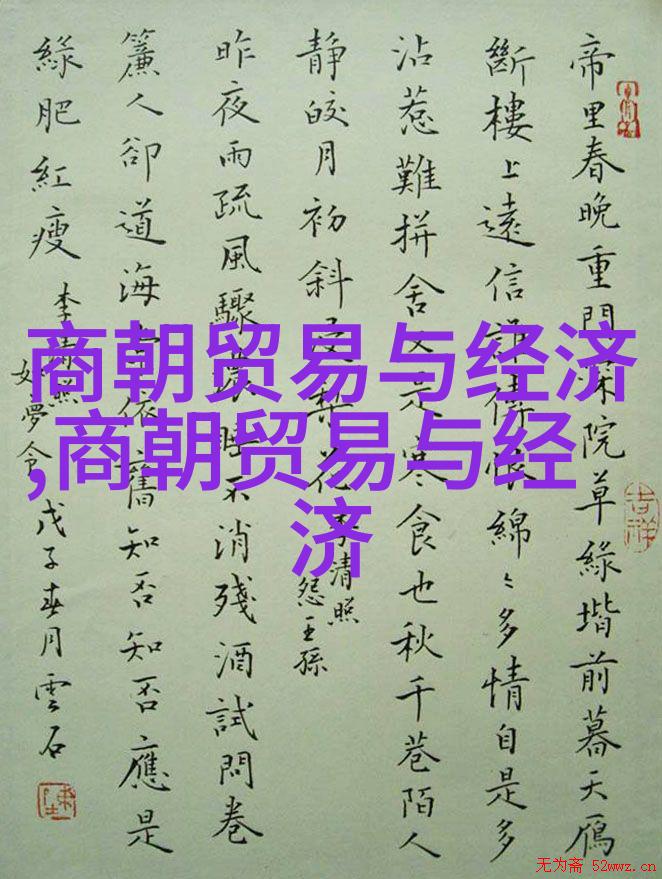 帝里春晚重門深院草綠堦前暮天鴈
斷樓上遠信誰傳恨綿〻多情自是多
沾惹難拼舍又是寒食也秋千巷陌人
靜皎月初斜浸梨花李清照
怨王孫
昨夜雨疏風驟濃睡不消殘酒試問卷
簾人卻道海棠依舊知否知否應是
綠肥紅瘦 李清照
如夢令 戊子春月雲石
吉祥
商朝贸易与经济
,商朝贸易与经
济
无为斋 52wwz.cn